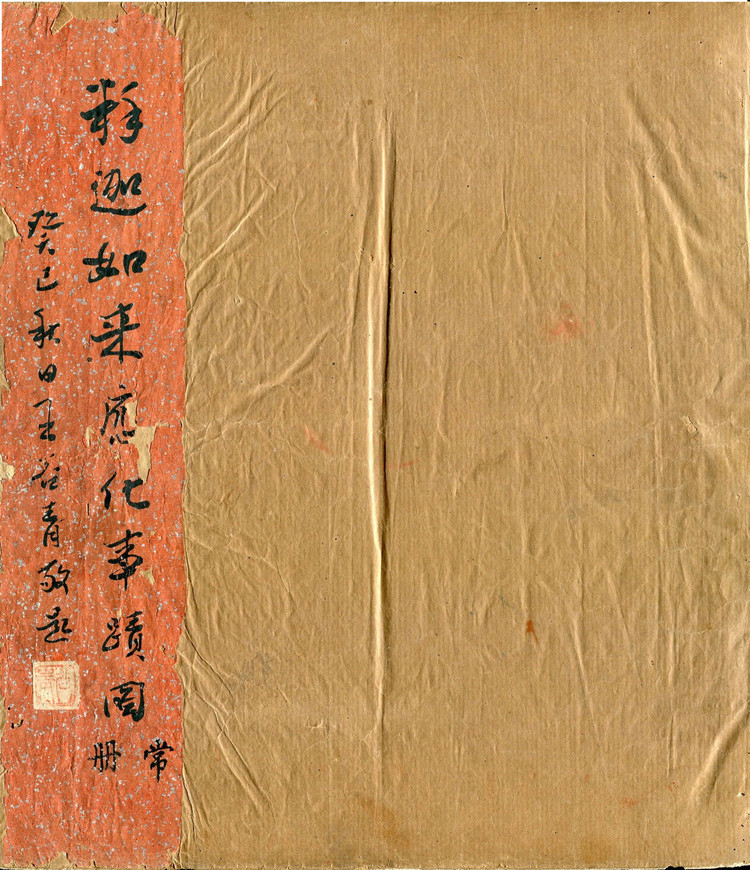 释迦如来應化事蹟图
常册
癸巳秋日王谷青敬题